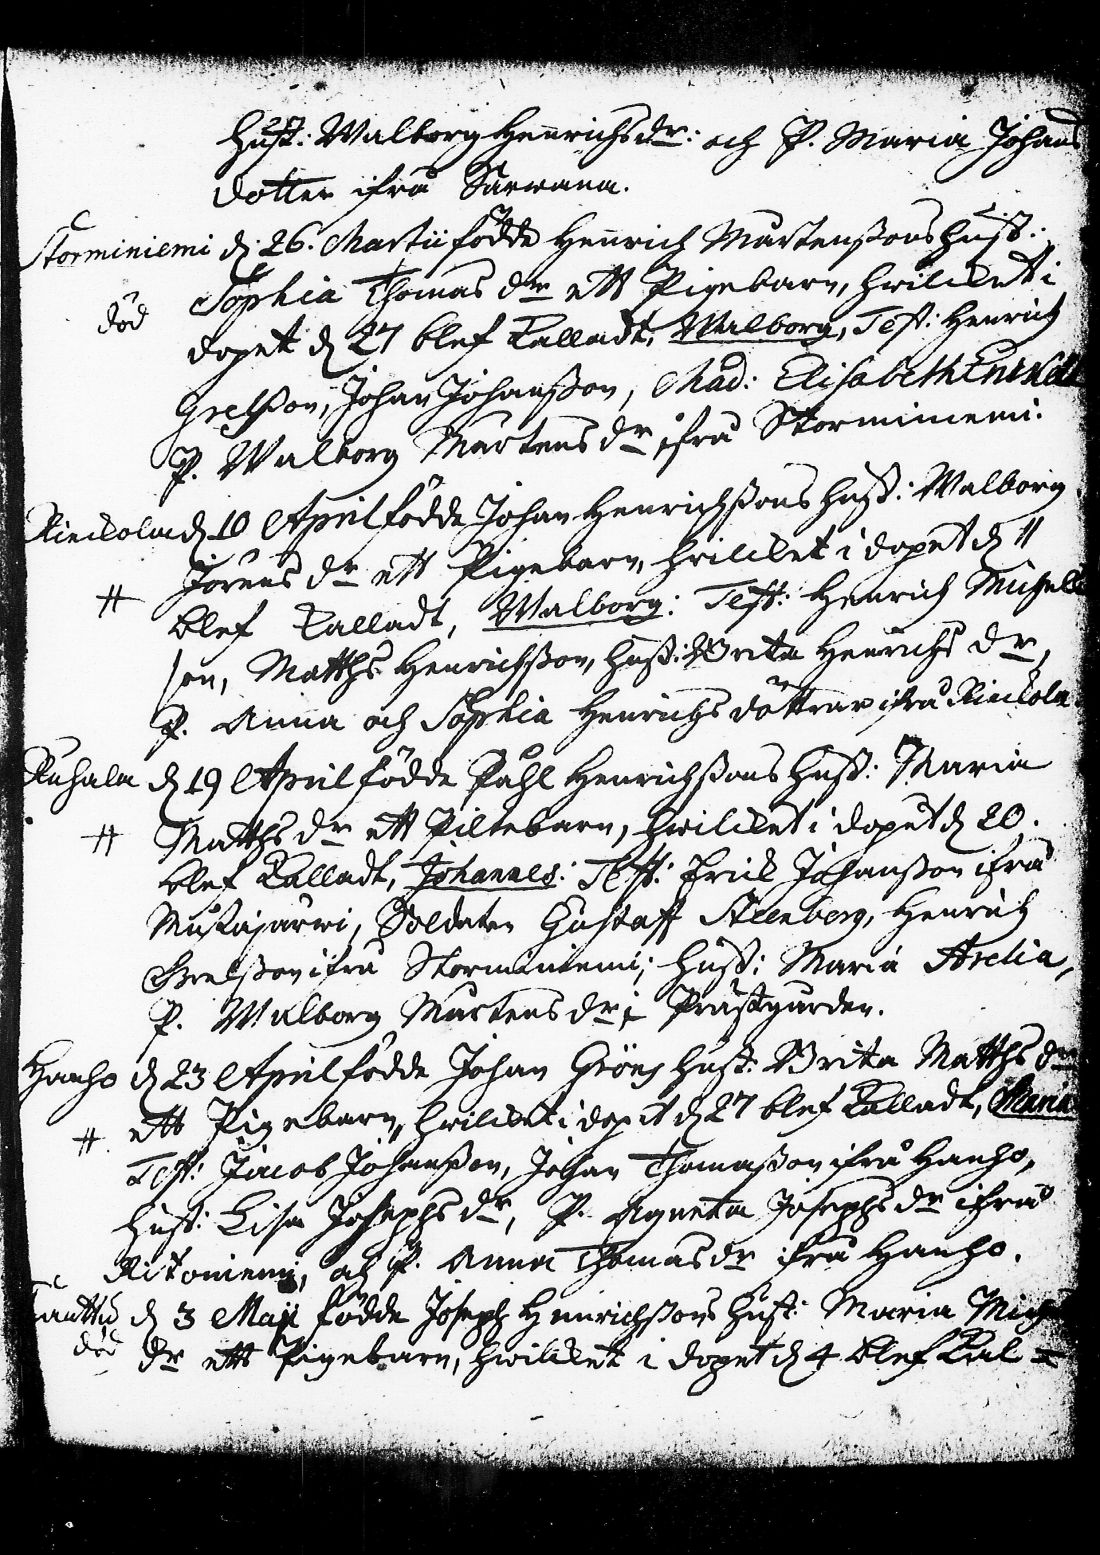 Hust: Walborg Henrichsdr: och P. Maria Johans
dotter ifrå Särwana.
Storminiemi d. 26. Martii födde Henrich Mårtenßons Hust:
Sophia Thomas dr ett Pigebarn, hwilcket i
död
dopet d 27 blef kalladt, Walborg, Test: Henrich
Grelßon, Johan Johanßon, Mad: Elisabeth
P. Walborg Mårtens dr ifrå Storminiemi.
d 10 April födde Johan Henrichßons hust: Walborg
Jörens dr ett Pigebarn, hwilcket i dopet d 11
#
blef kalladt, Walborg: Test: Henrich Michels
son, Matths Henrichßon, hust: Brita Henrichs dr,
P. Anna och Sophia Henrichs döttrar ifrå
Ruhala d 19 April födde Påhl Henrichßons hust: Maria
Matths dr ett Piltebarn, hwilcket i dopet d 20.
#
blef kalladt, Johannes: Test: Erick Johanßon ifrå
Mustajärwi, Soldaten Gustaff Steenberg, Henrich
Grelßon ifrå Storminiemi; hust: Maria Arelia,
P. Walborg Mårtens dr i Prästgården.
Hanho d 23 April födde Johan Gröns hust: Brita Matths dr
ett Pigebarn, hwilcket i dopet d 27 blef kalladt, Maria
#.
Test: Jacob Johanßon, Johan Thomaßon ifrå Hanho,
hust: Lisa Josephs dr, P. Agneta Josephs dr ifrå
Ritoniemi, och P. Anna Thomas dr ifrå Hanho.
d 3 Maji födde Joseph Henrichßons hust: Maria Mich
död
dr ett Pigebarn, hwilcket i dopet d 4 blef kal=